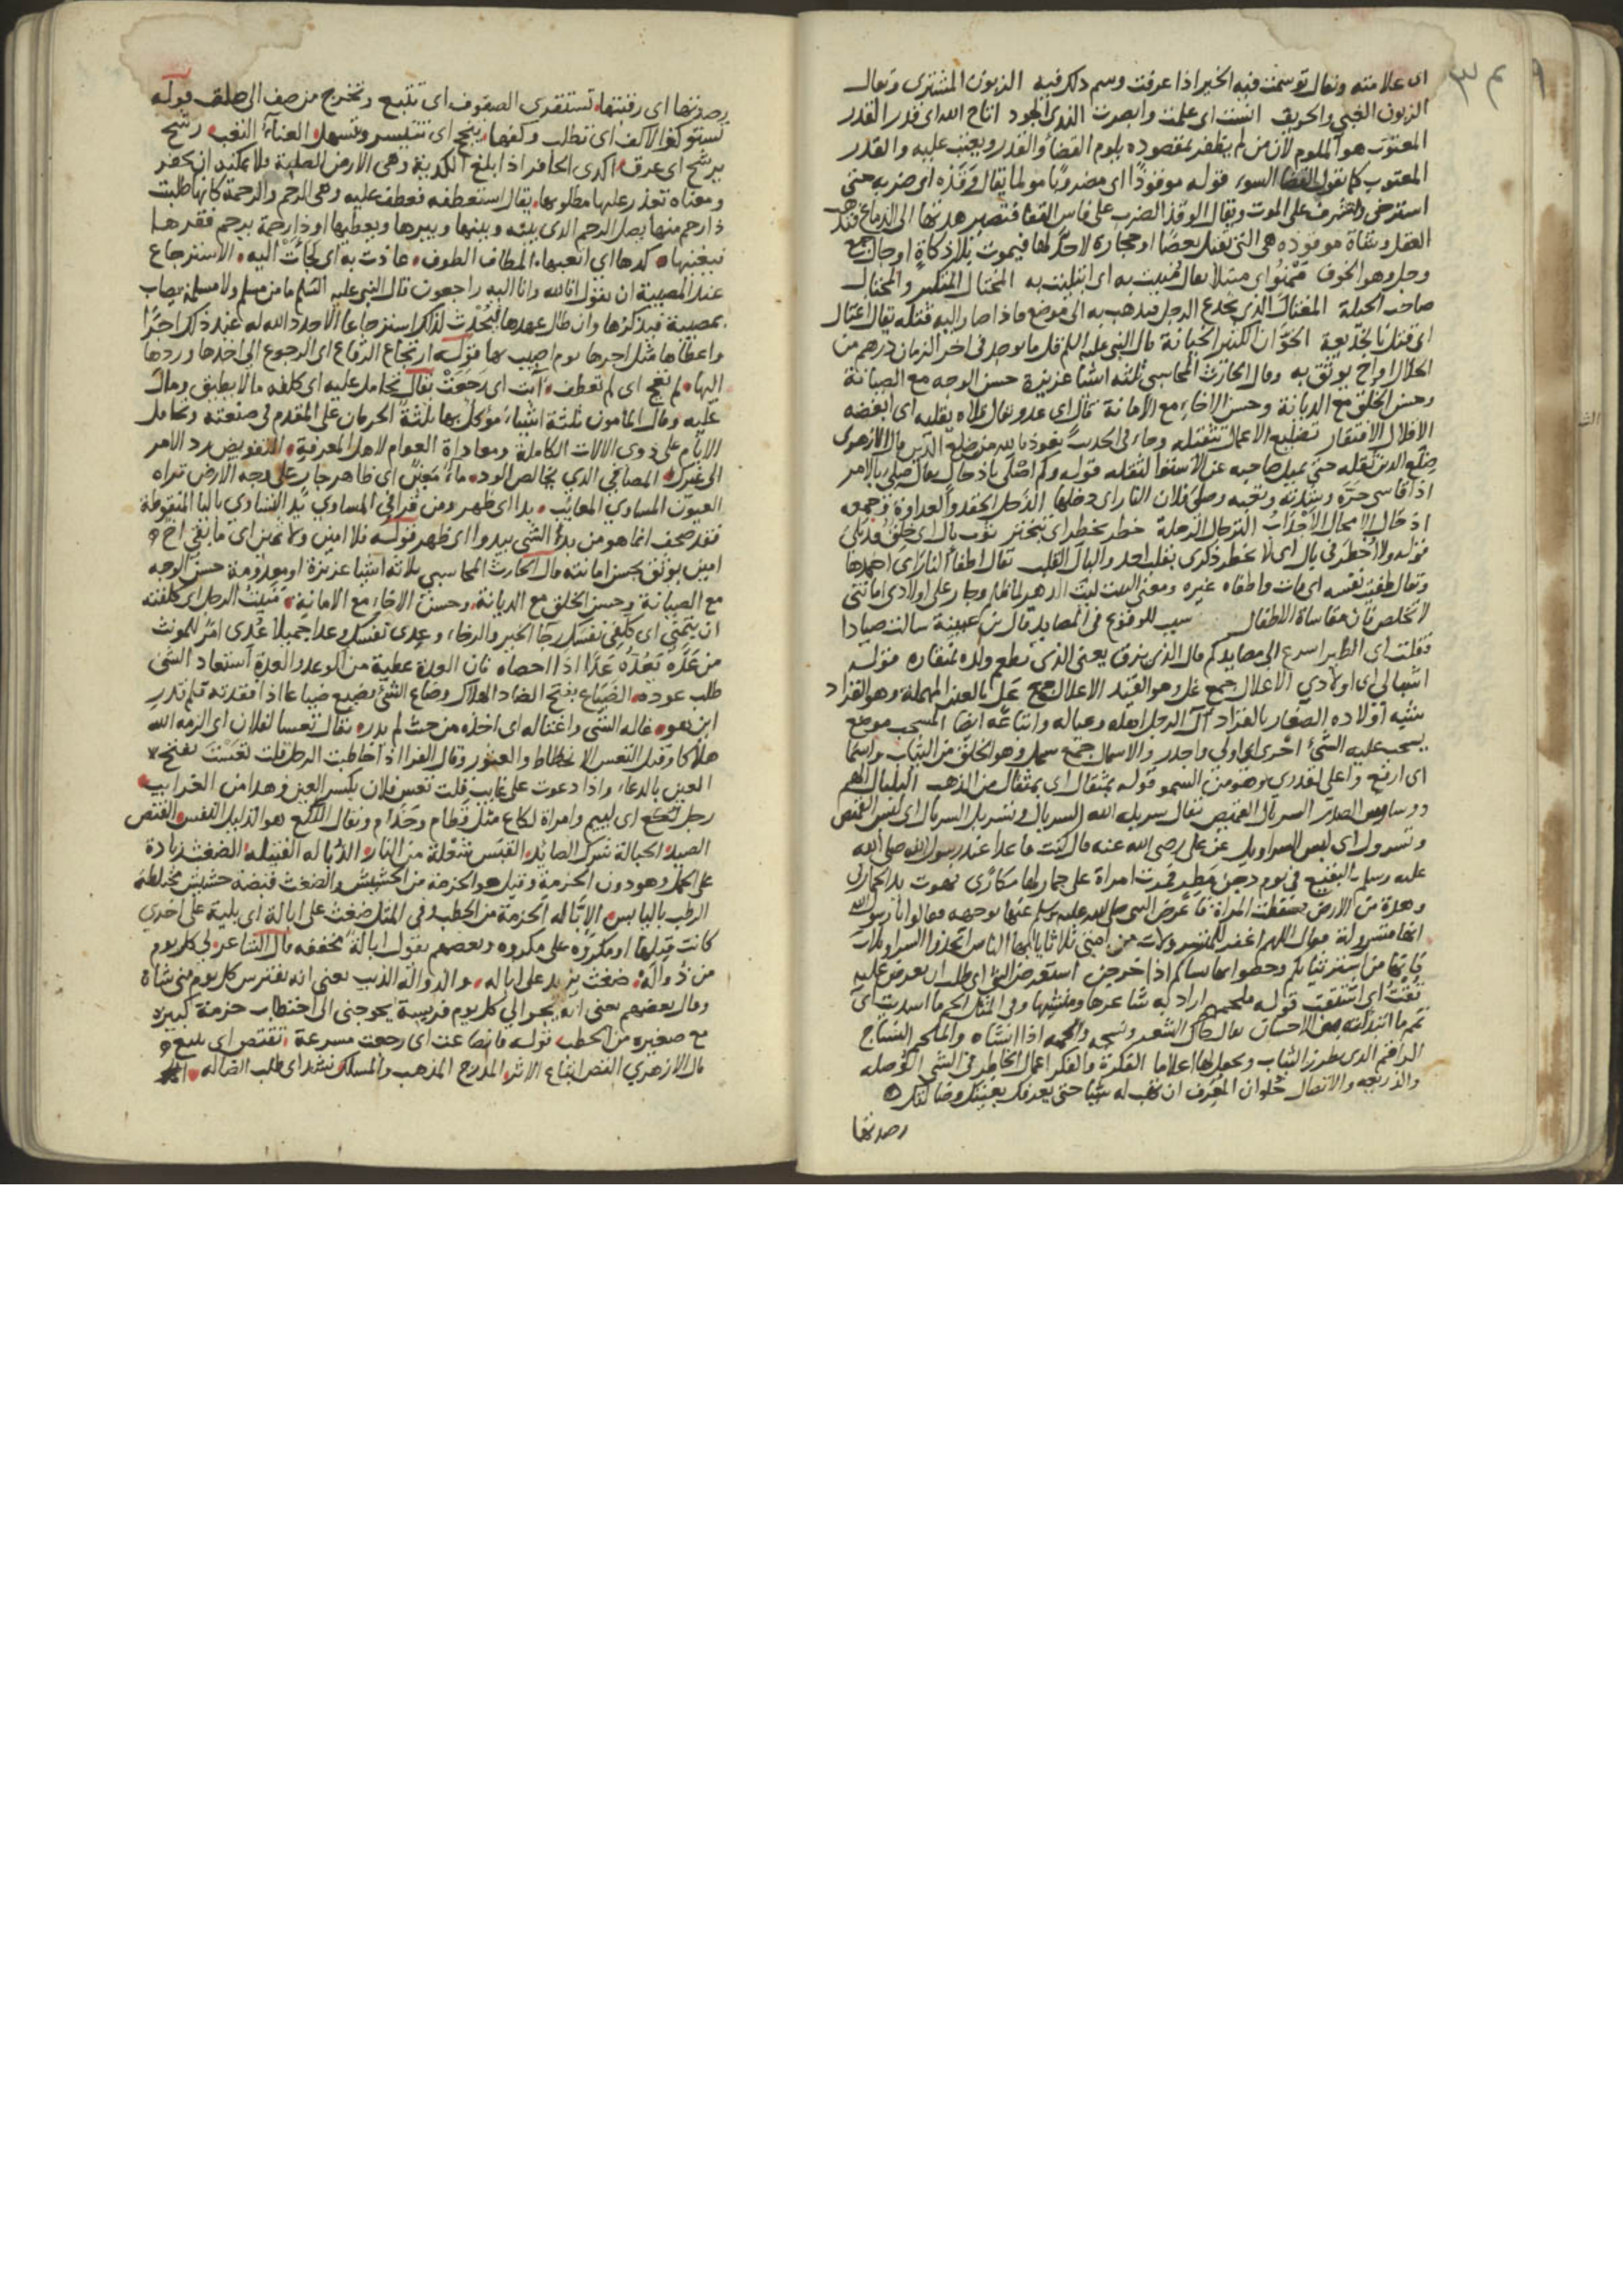 اى علامته ويقال توسمت فيه الخير اذا عرفت وسم ذلك فيه الزبون المشترى ويقال
الزبون الغبي والحريف انست اى علمت وابصرت الندى الجود اتاح الله اى قدر القدر
المعتوب هو الملوم لان من لم يظفر بمقصوده يلوم القضا والقدر ويعتب عليه والقدر
المعتوب كما نقول القضا السوء قوله موقوذا اى مضروبا مولما يقال وقذه اى ضربه حتى
استرخى واشرف على الموت ويقال الوقذ الضرب على فاس القفا فتصير هدتها الى الدماغ فيذهب
العقل وشاة موقوذة هى التى تقتل بعصا او حجارة لاحد لها فيموت بلا ذكاة اوجال جمع
وجل وهو الخوف ممنوا اى مبتلا يقال منيت به اى ابتليت به المختال المتكبر والمحتال
صاحب الحيلة المغتال الذى يخدع الرجل فيذهب به الى موضع فاذا صار اليه قتله يقال اغتال
اى قتل بالخديعة الخوان الكثير الخيانة قال النبى عليه السلم قل ما يوجد فى اخر الزمان درهم من
الحلال او اخ يوثق به وقال الحارث المحاسبى ثلثة اشيا عزيزة حسن الوجه مع الصيانة
وحسن الخلق مع الديانة وحسن الاخاء مع الامانة قال اى عدو يقال قلاه يقليه اى ابغضه
الاقلال الافتقار تضليع الاعمال تثقيله وجاء فى الحديث نعوذ بالله من ضلع الدين قال الازهرى
ضلع الدين ثقله حتى يميل صاحبه عن الاستوا لثقله قوله وكم اصلى باذحال يقال صلى بالامر
اذا قاسى حره وشدته وتعبه وصلى فلان النار اى دخلها الذحل الحقد والعداوة وجمعه
اذحال الامحال الاجداب الترحال الرحلة خطر يخطر اى تبختر ثوب بال اى خلق قد بلى
قوله ولا اخطر فى بال اى لا يخطر ذكرى بقلب احد والبال القلب يقال اطفأ النار اى اخمدها
ويقال طفيت نفسه اى مات واطفاه غيره ومعنى البيت ليت الدهر لما ظلم وجار على اولادى اماتنى
لاتخلص من مقاساة الاطفال سبب للوقوع فى المصايد قال بن عيينة سالت صيادا
فقلت اى الطير اسرع الى مصايدكم قال الذى يزق يعنى الذى يطعم ولده بمنقاره قوله
اشبالى اى اولادي الاغلال جمع غل وهو القيد الاعلال جمع عل بالعين المهملة وهو القراد
شبه اولاده الصغار بالقراد ال الرجل اهله وعياله واتباعه ايضا المسحب موضع
يسحب عليه الشئ احرى اى اولى واجدر والاسمال جمع سمل وهو الخلق من الثياب واسما
اى ارفع واعلى لقدرى وهو من السمو قوله بمثقال اى بمثقال من الذهب البلبال الهم
ووساوس الصدر السربال القميص يقال سربله الله السربال وتسربل السربال اى لبس القميص
وتسرول اى لبس السراويل عن على رضى الله عنه قال كنت قاعدا عند رسول الله صلى الله
عليه وسلم بالبقيع فى يوم دجن مطير فمرت امراة على حمار لها مكارى فهوت يد الحمار فى
وهدة من الارض فسقطت المراة فاعرض النبى صلى الله عليه وسلم عنها بوجهه فقالوا يا رسول الله
انها متسرولة فقال اللهم اغفر للمتسرولات من امتى ثلاثا يا ايها الناس اتخذوا السراويلات
فانها من استر ثيابكم وحصنوا بها نساكم اذا خرجن استعرض الشئ اى طلب ان يعرض عليه
تقت اى اشتقت قوله ملحمه اراد به شاعرها ومنشيها وفى المثل الحم ما اسديت اى
تمم ما ابتداته من الاحسان يقال حاك الشعر ونسجه والحمه اذا انشاه والملحم النساج
الراقم الذى يطرز الثياب ويجعل لها اعلاما الفكرة والفكر اعمال الخاطر فى الشئ الوصله
والذريعه والاتصال حلوان المعرف ان تهب له شيا حتى يعرفك بعينك وضالتك
رصدتها
رصدتها اى رقبتها تستقرى الصفوف اى تتبع وتخرج من صف الى صف قوله
تستوكف الاكف اى تطلب وكفها ينجح اى يتيسر ويتسهل العناء التعب رشح
يرشح اى عرق اكدى الحافر اذا بلغ الكدية وهى الارض الصلبة ولا يمكنه ان يحفر
ومعناه تعذر عليها مطلوبها يقال استعطفه فعطف عليه وهى الرحم والرحمة كانها طلبت
ذا رحم منها يصل الرحم الذى بينه وبينها ويبرها ويعطيها او ذا رحمة يرحم فقرها
فيغنيها كدها اى اتعبها المطاف الطوف عاذت به اى لجأت اليه الاسترجاع
عند المصيبة ان يقول انا لله وانا اليه راجعون قال النبى عليه السلم ما من مسلم ولا مسلمة يصاب
بمصيبة فيذكرها وان طال عهدها فيحدث لذلك استرجاعا الا جدد الله له عند ذلك اجرا
واعطاه مثل اجرها يوم اصيب بها قوله ارتجاع الرقاع اى الرجوع الى اخذها وردها
اليها لم تعج اى لم تعطف ابت اى رجعت يقال تحامل عليه اى كلفه ما لا يطيق ومال
عليه وقال المامون ثلثة اشياء موكل بها ثلثة الحرمان على المقدم فى صنعته وتحامل
الايام على ذوى الالات الكاملة ومعاداة العوام لاهل المعرفة التفويض رد الامر
الى غيرك المصافى الذى يخالص الود ماء معين اى ظاهر جار على وجه الارض تراه
العيون المساوي المعايب بدا اى ظهر ومن قرا فى المساوي بد التساوي بالتا المنقوطة
فقد صحف انما هو من بدأ الشئ يبدوا اى ظهر قوله فلا امين ولا ثمين اى ما بقى اخ
امين يوثق بحسن امانته قال الحارث المحاسبى ثلاثة اشيا عزيزة او معدومة حسن الوجه
مع الصيانة وحسن الخلق مع الديانة وحسن الاخاء مع الامانة منيت الرجل اى كلفته
ان يتمنى اى كلفى نفسك رجا الخير والرخاء وعدى نفسك وعدا جميلا عدى امر للمونث
من عده يعده عدا اذا احصاه فان العدة عطية من الوعد والعدة استعاد الشئ
طلب عوده الضياع بفتح الضاد الهلاك وضاع الشئ يضيع ضياعا اذا افتقدته فلم تدر
اين هو غاله الشئ واغتاله اى اخذه من حيث لم يدره يقال تعسا لفلان اى الزمه الله
هلاكا وقيل التعس الانحطاط والعثور وقال الفرا اذا خاطبت الرجل قلت تعست بفتح
العين بالدعاء واذا دعوت على غايب قلت تعس فلان بكسر العين وهذا من الغرايب
رجل لكع اى لييم وامراة لكاع مثل قطام وحذام ويقال اللكع هو الذليل النفس القنص
الصيد الحبالة شرك الصائد القبس شعلة من النار الذباله الفتيلة الضغث زيادة
على الحمل وهو دون الحزمة وقيل هو الحزمة من الحشيش والضغث قبضة حشيش مختلطة
الرطب باليابس الابالة الحزمة من الحطب وفى المثل ضغث على ابالة اى بلية على اخرى
كانت قبلها او مكروه على مكروه وبعضهم يقول ابالة مخففه قال الشاعر لى كل يوم
من ذواله ضغث يزيد على اباله والذواله الذيب يعنى انه يفترس كل يوم منى شاة
وقال بعضهم يعنى انه يجر الي كل يوم فريسة يحوجنى الى احتطاب حزمة كبيرة
مع صغيره من الحطب قوله فانصاعت اى رجعت مسرعة تقتص اى تتبع
قال الازهري القص اتباع الاثر المدرج المذهب والمسلك نشد اى طلب الضاله